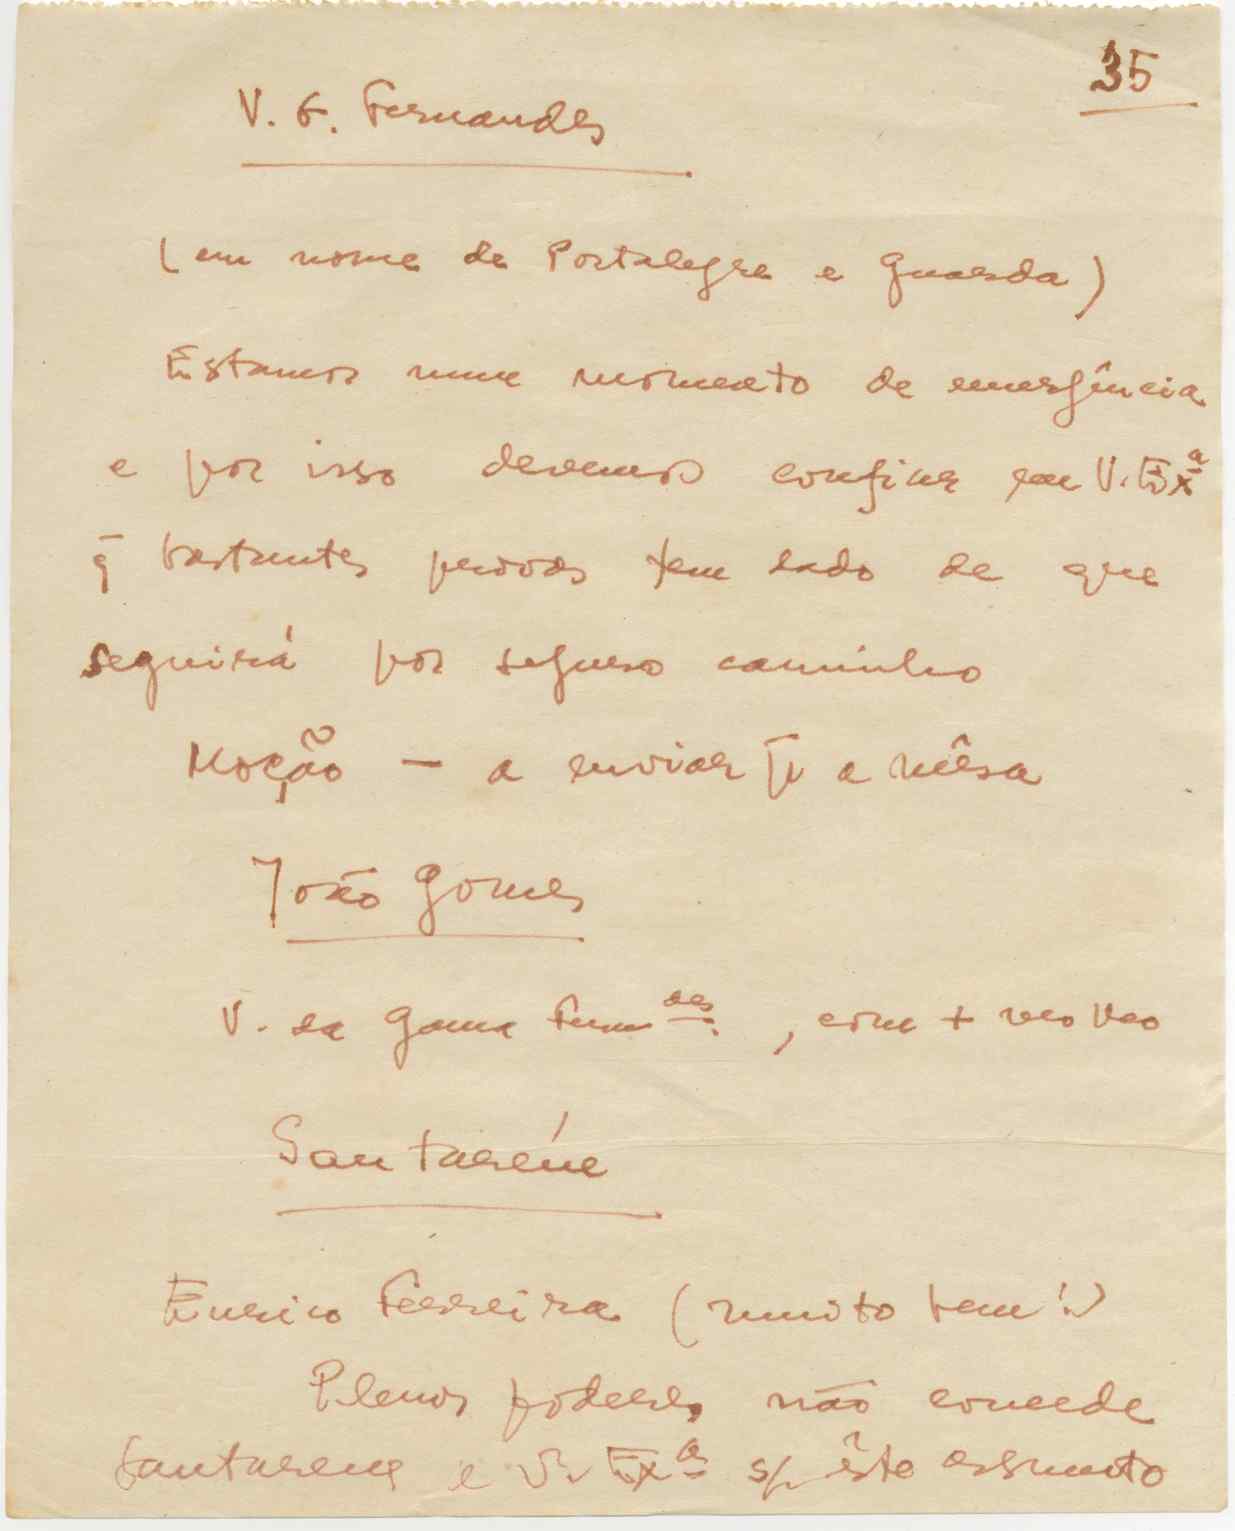 35
V. G. Fernandes
(em nome de Portalegre e Guarda)
Estamos num momento de emergência
e por isso devemos confiar em V. Exª
q̄ bastantes provas tem dado de que
seguirá por seguro caminho
Moção — a enviar p̄ a mêsa
João Gomes
V. da Gama Ferndes., com +
Santarém
Eurico Ferreira (muito bem!)
Plenos poderes, não concede
Santarem a V. Exas s/ êste assunto